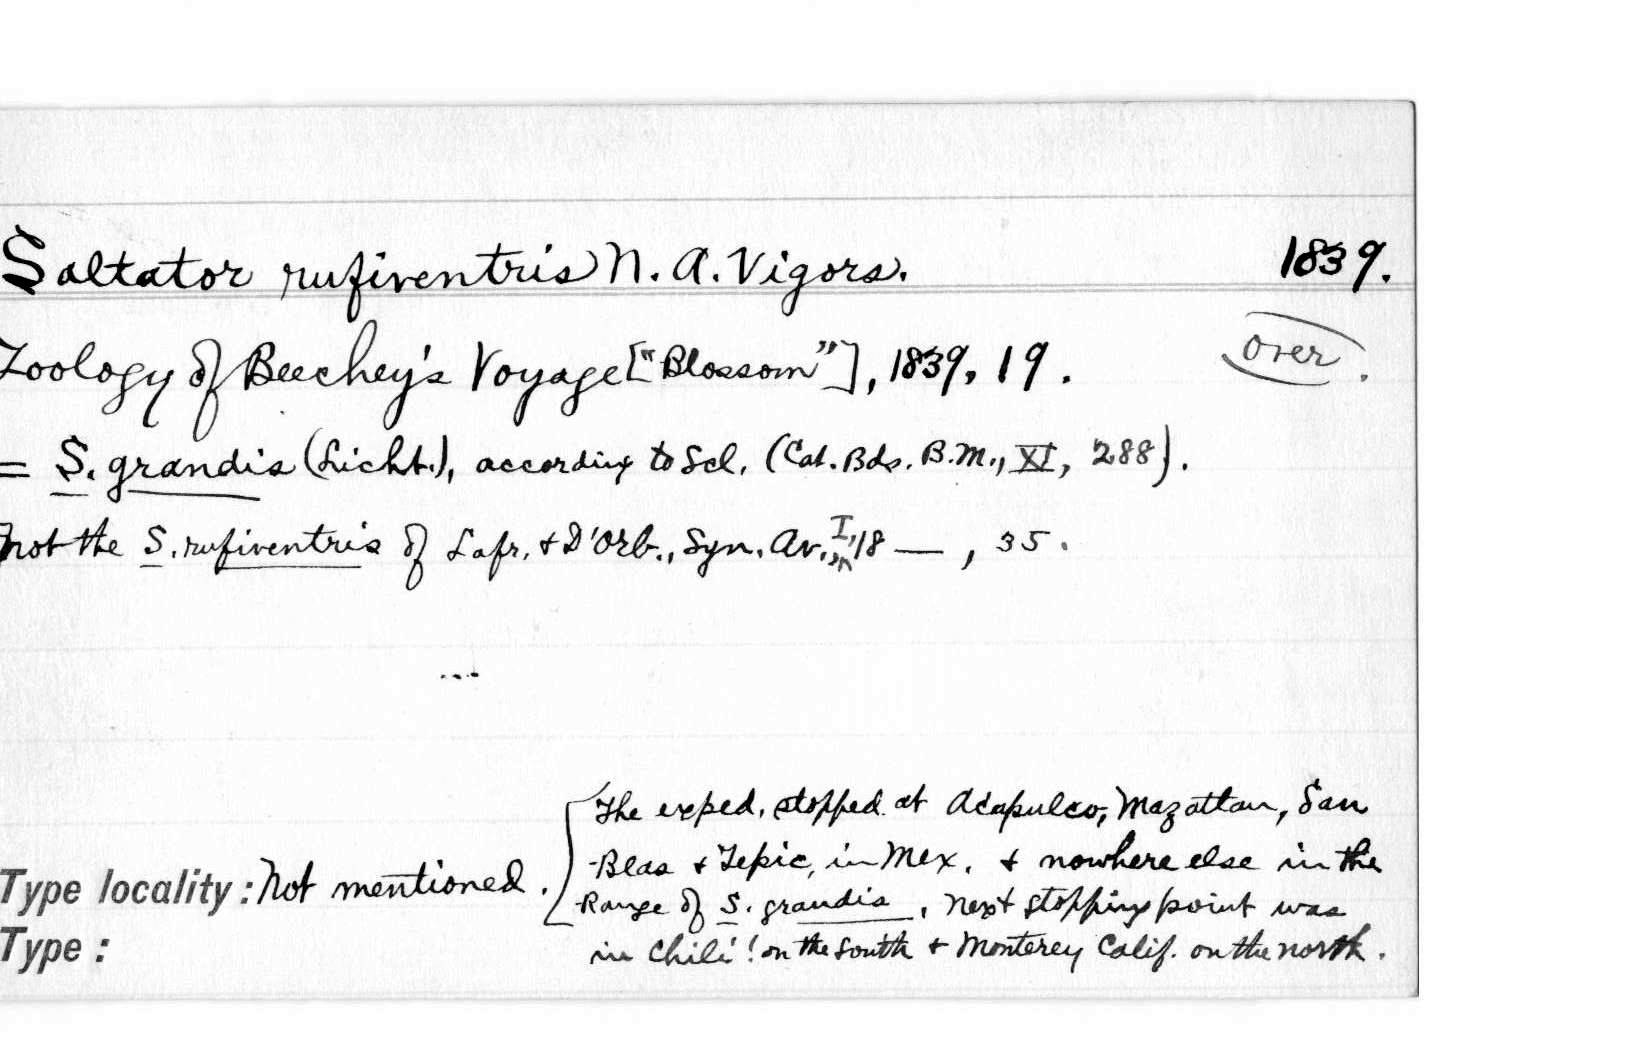 Saltator rufiventris N. A. Vigors. 1839.
Zoology of Beechey's Voyage ["Blossom"], 1839, 19. over.
= S. grandis (Licht.), according to Scl. (Cat. Bds. B.M., XI, 288).
not the S. rufiventris of Lafr. + D'Orb., Syn. Av. I, 18 — , 35.
The exped. stopped at Acapulco, Mazatlan, San
Blas + Tepic, in Mex. + nowhere else in the
Type locality: Not mentioned.
Range of S. grandis, next stopping point was
Type:
in Chili! on the south + Monterey Calif. on the north.